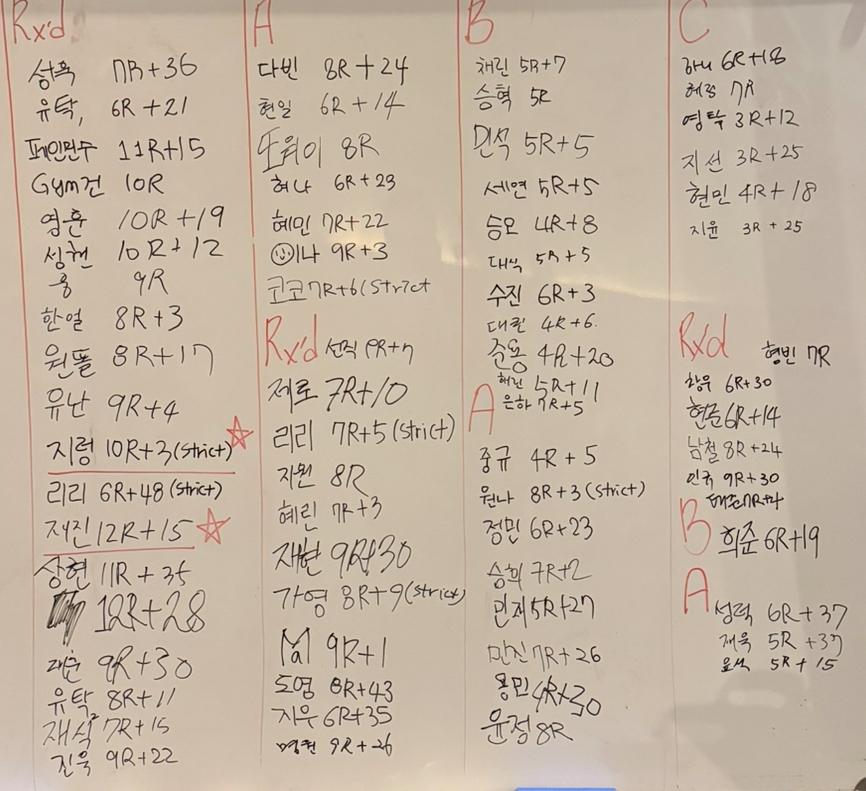 Rx'd
성혁 7R+36
유탁, 6R+21
페인민수 11R+15
Gym건 10R
영훈 10R+19
성현 10R+12
홍 9R
한얼 8R+3
원똘 8R+17
유난 9R+4
지렁 10R+3(strict)
리리 6R+48(strict)
재진 12R+15
상현 11R+35
12R+28
9R+30
유탁 8R+11
재석 7R+15
진욱 9R+22
A
다빈 8R+24
현일 6R+14
또워이 8R
허나 6R+23
혜민 7R+22
이나 9R+3
코코 7R+6(Strict
Rx'd
제로 7R+10
리리 7R+5(strict)
지원 8R
혜린 7R+3
재현 9R+30
가영 8R+9(strict)
9R+1
도영 8R+43
지우 6R+35
9R+26
B
채린 5R+7
승혁 5R
민석 5R+5
세연 5R+5
승모 4R+8
대식 5R+5
수진 6R+3
대린 4R+6.
준용 4R+20
혜린 5R+11
은하 7R+5
A
중규 4R+5
원나 8R+3(strict)
정민 6R+23
승희 7R+2
민재 5R+27
만진 7R+26
용민 4R+30
윤정 8R
C
하니 6R+18
혜정 7R
영탁 3R+12
지선 3R+25
현민 4R+18
지윤 3R+25
Rx'd
형빈 7R
창우 6R+30
현준 6R+14
남철 8R+24
민국 9R+30
B
희준 6R+19
A
성덕 6R+37
재욱 5R+37
5R+15